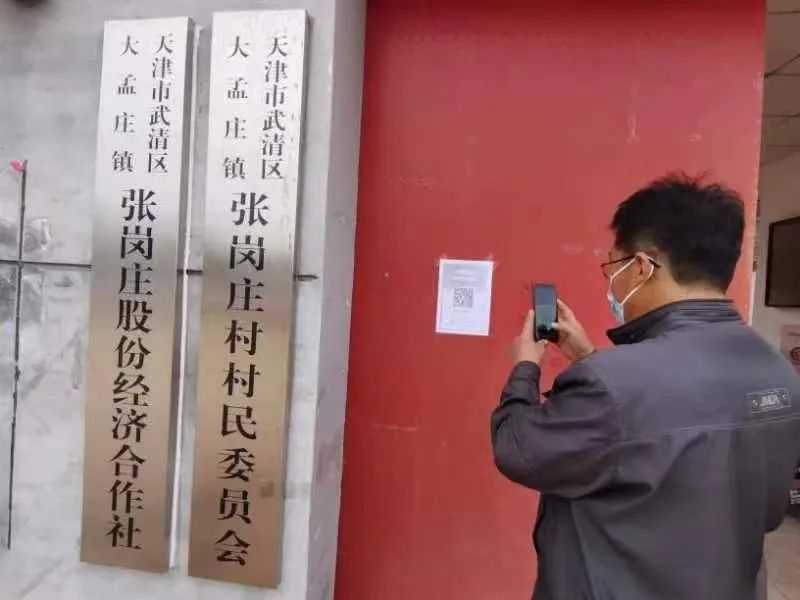 天津市武清区
大孟庄镇
张岗庄股份经济合作社
天津市武清区
大孟庄镇
张岗庄村村民委员会